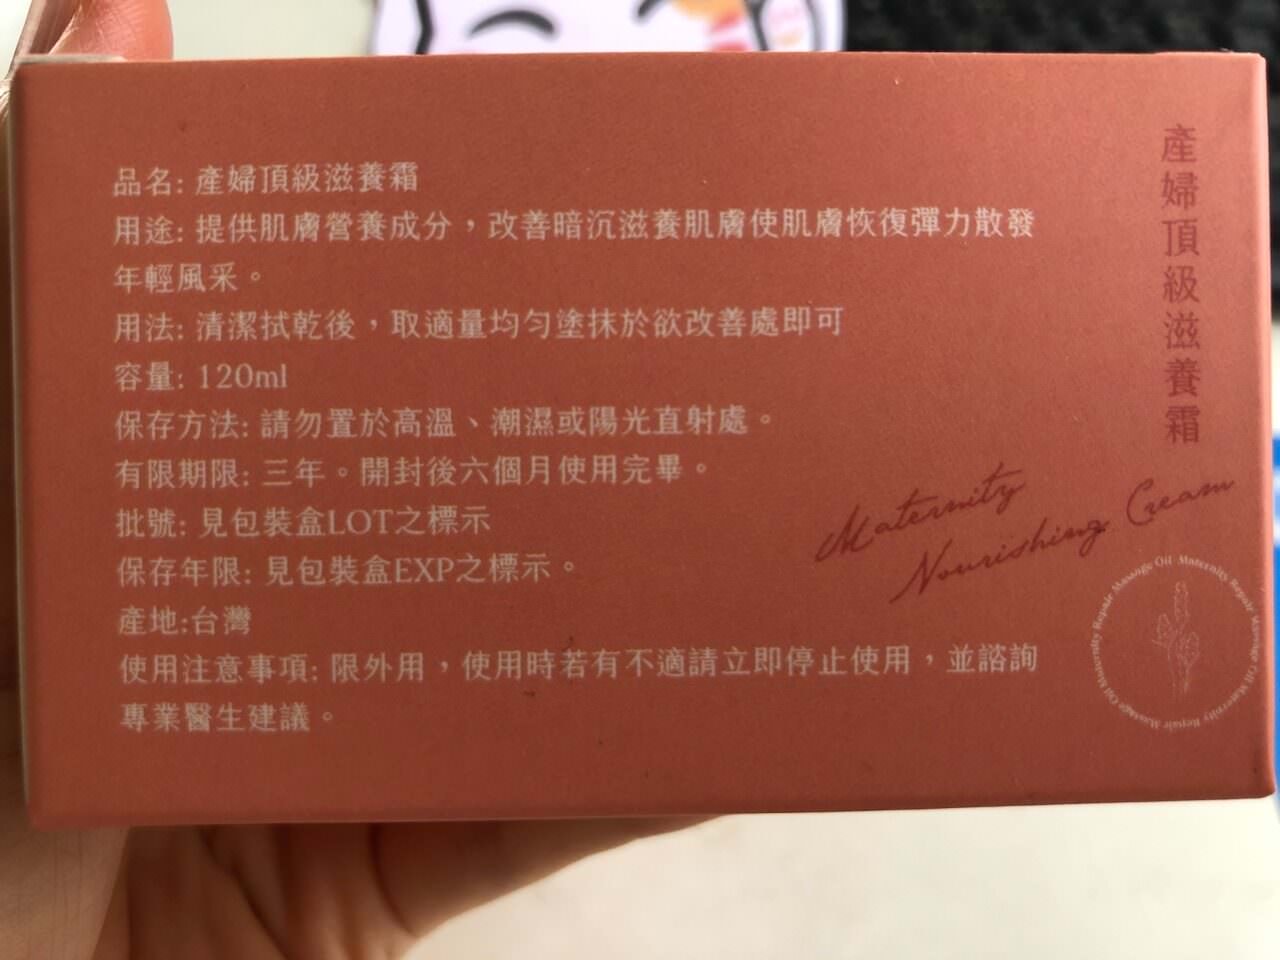 品名: 產婦頂級滋養霜
用途: 提供肌膚營養成分，改善暗沉滋養肌膚使肌膚恢復彈力散發
年輕風采。
用法: 清潔拭乾後，取適量均勻塗抹於欲改善處即可
容量: 120ml
保存方法: 請勿置於高溫、潮濕或陽光直射處。
有限期限: 三年。開封後六個月使用完畢。
批號: 見包裝盒LOT之標示
保存年限: 見包裝盒EXP之標示。
產地:台灣
使用注意事項: 限外用，使用時若有不適請立即停止使用，並諮詢
專業醫生建議。
產婦頂級滋養霜
Maternity
Nourishing Cream
Maternity Repair Massage Oil Maternity Repair Massage Oil Maternity Repair Massage Oil